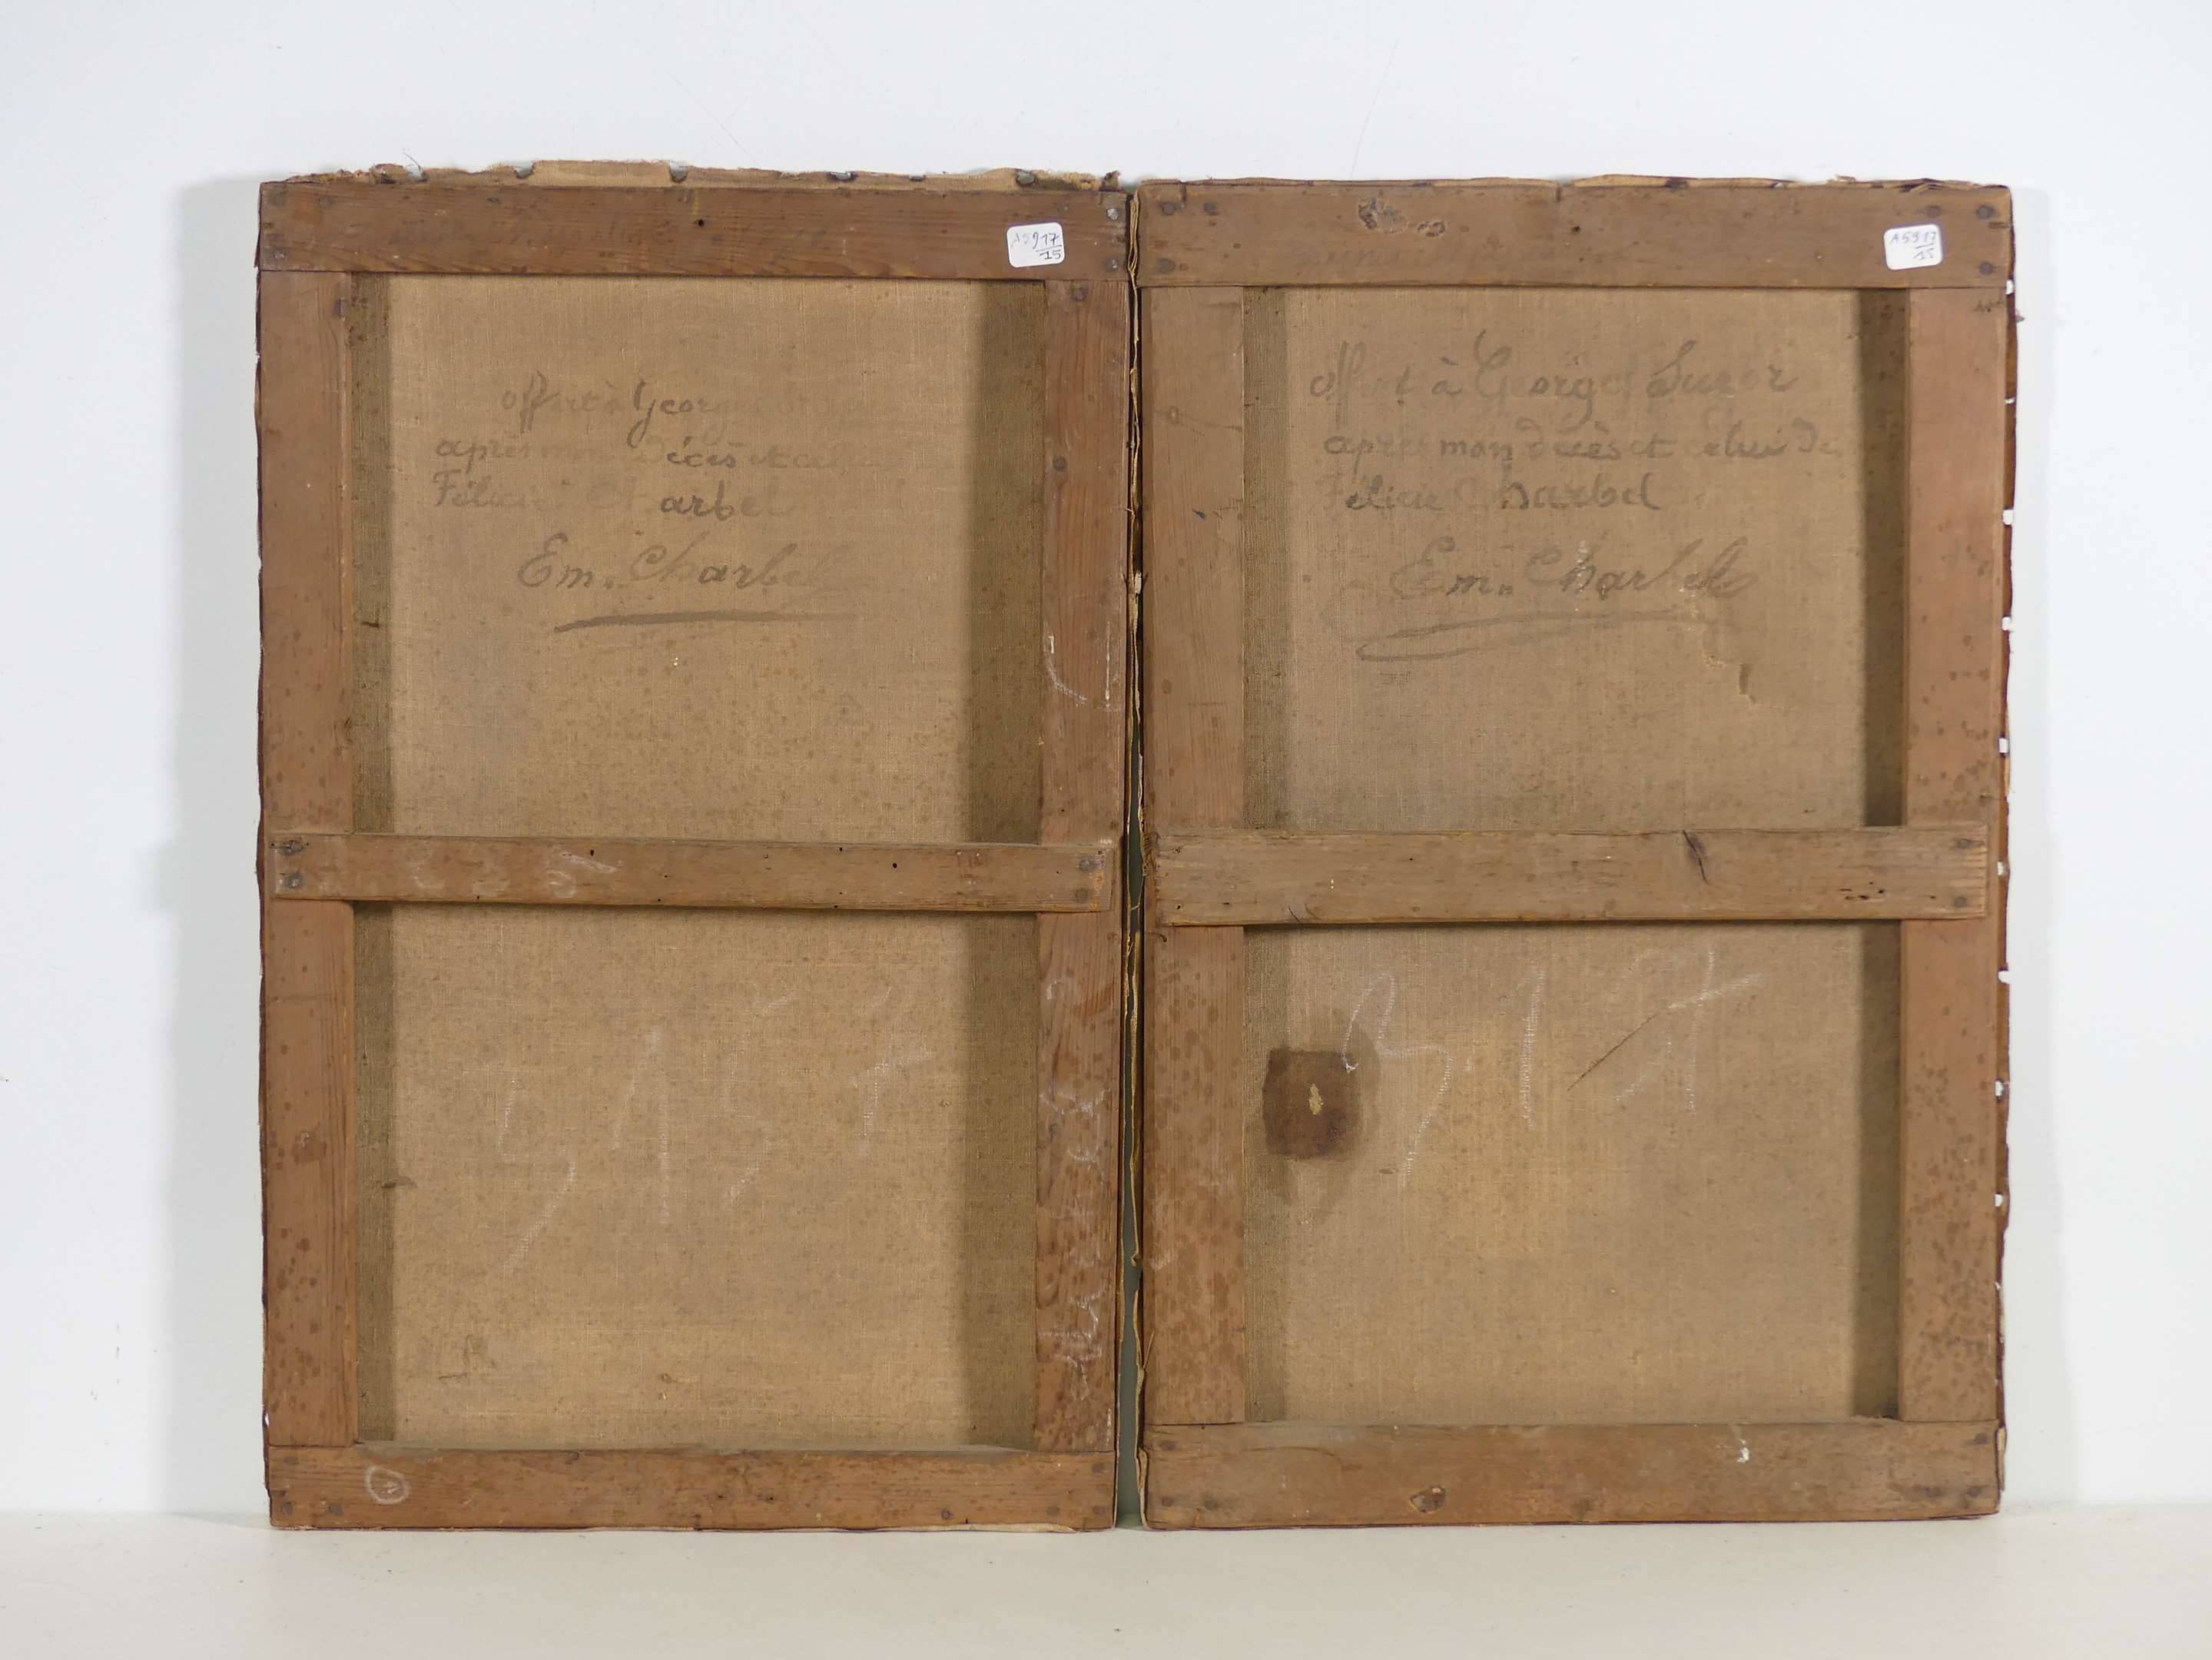 A5917
15
offert à Georg
après mon décès et
Félicie Charbel
Em. Charbel
A5917
15
offert à Georges Suzor
après mon décès et celui de
Félicie Charbel
Em. Charbel
317